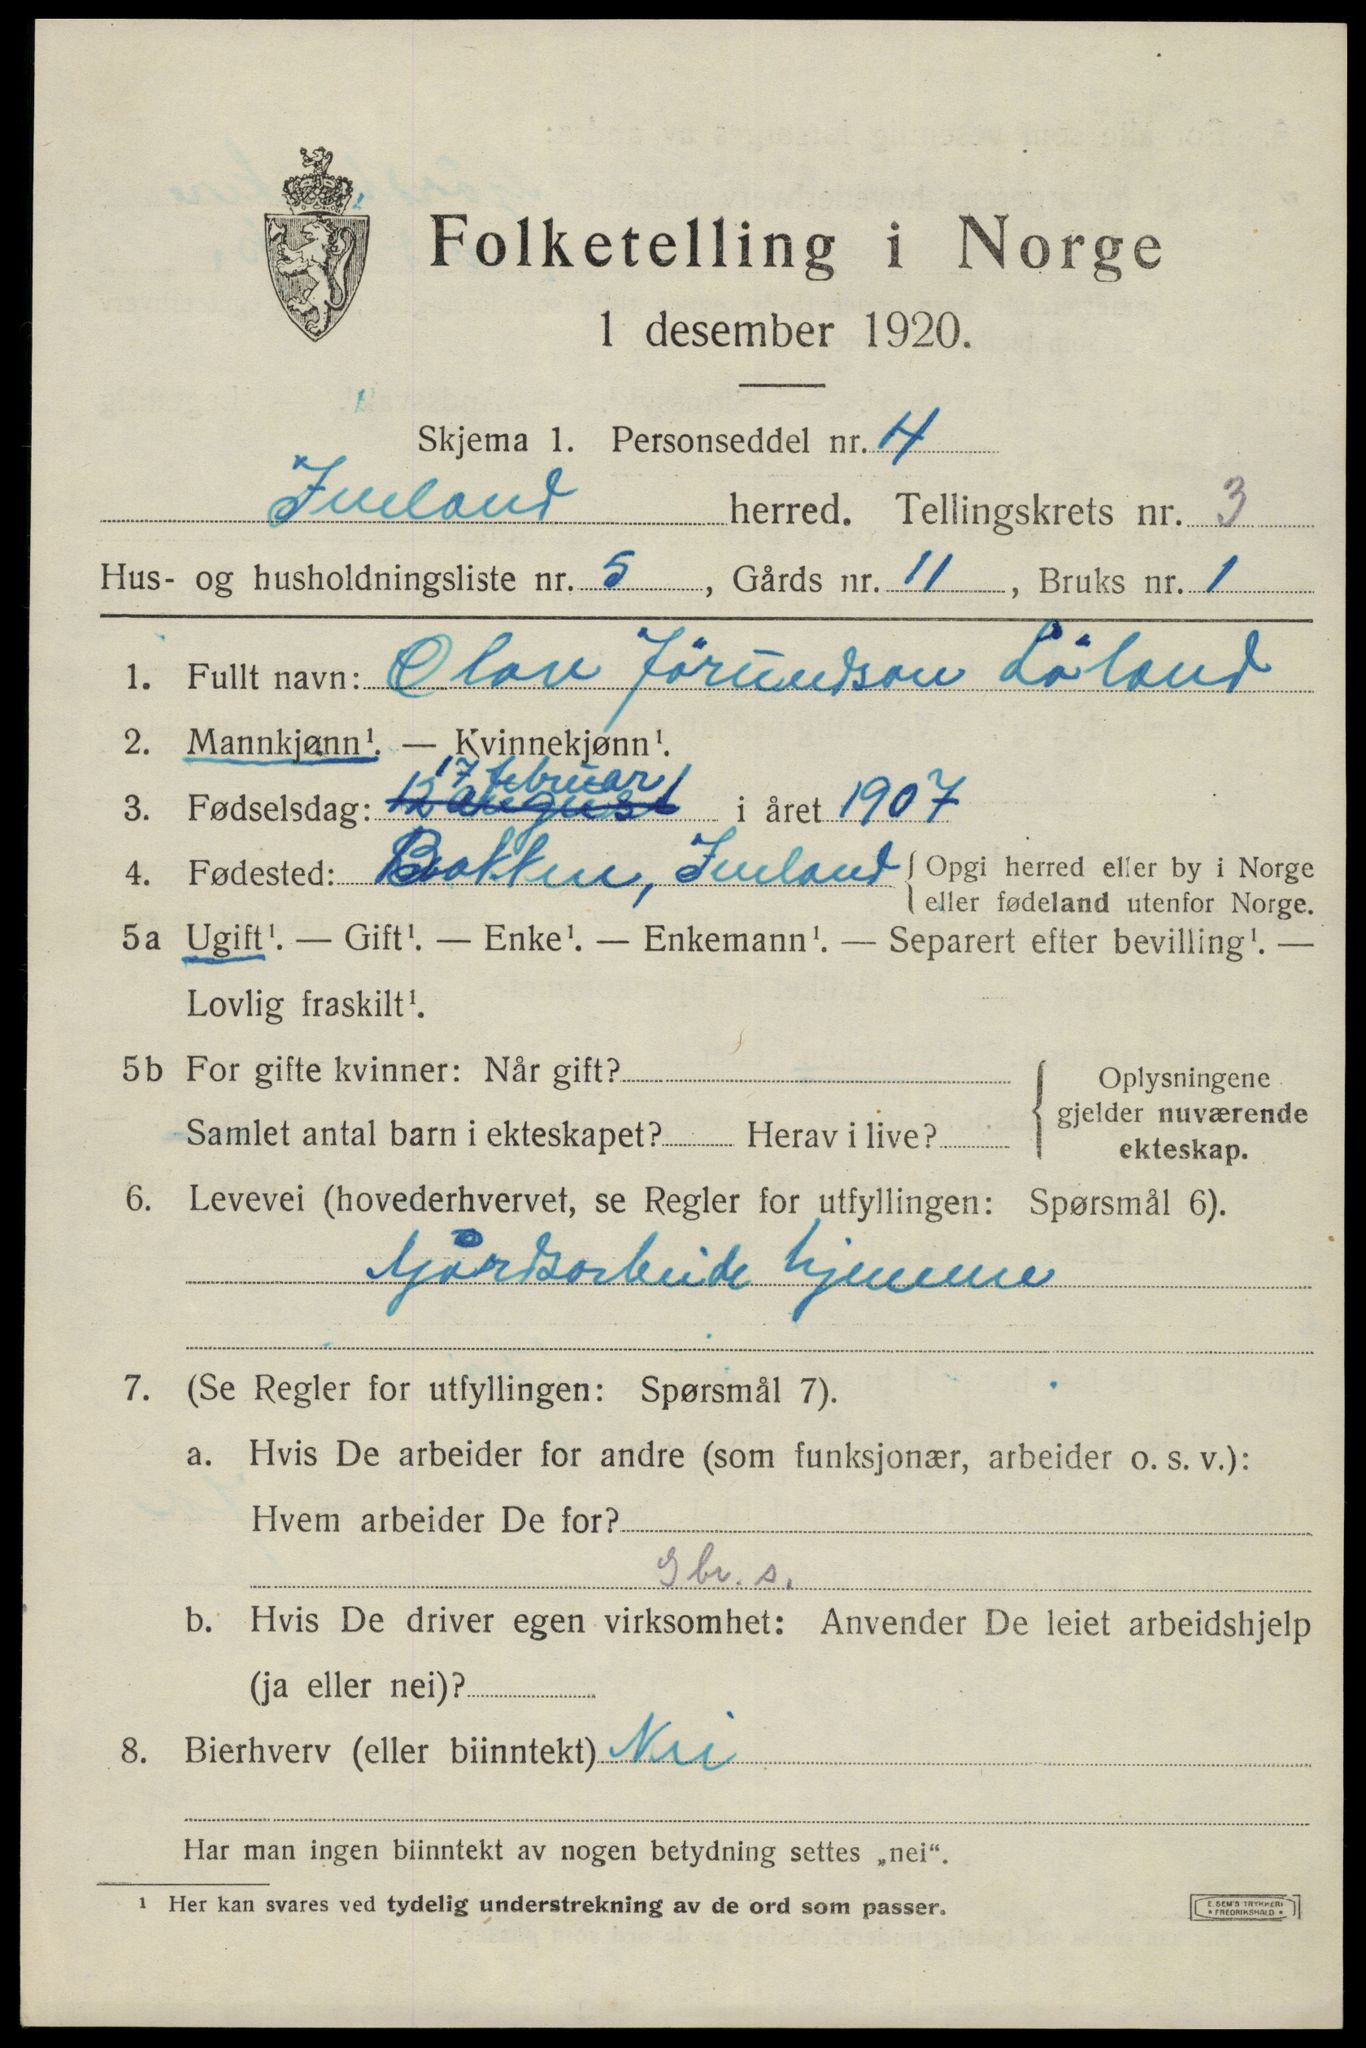 Folketelling i Norge
1 desember 1920.
Skjema 1. Personseddel nr. 4
Iveland herred. Tellingskrets nr. 3
Hus- og husholdningsliste nr. 5, Gårds nr. 11, Bruks nr. 1
1. Fullt navn: Olav Jörundson Löland
2. Mannkjønn¹. — Kvinnekjønn¹.
17 februar
3. Fødselsdag: 12 august i året 1907
4. Fødested: Bakken, Iveland { Opgi herred eller by i Norge
eller fødeland utenfor Norge.
5a Ugift¹. — Gift¹. — Enke¹. — Enkemann¹. — Separert efter bevilling¹. —
Lovlig fraskilt¹.
5b For gifte kvinner: Når gift?
Samlet antal barn i ekteskapet? Herav i live?
Oplysningene
gjelder nuværende
ekteskap.
6. Levevei (hovederhvervet, se Regler for utfyllingen: Spørsmål 6).
Gårdsarbeide hjemme
7. (Se Regler for utfyllingen: Spørsmål 7).
a. Hvis De arbeider for andre (som funksjonær, arbeider o. s. v.):
Hvem arbeider De for?
Gbr. s.
b. Hvis De driver egen virksomhet: Anvender De leiet arbeidshjelp
(ja eller nei)?
8. Bierhverv (eller biinntekt) Nei
Har man ingen biinntekt av nogen betydning settes „nei“.
¹ Her kan svares ved tydelig understrekning av de ord som passer.
E. SEM'S TRYKKERI
* FREDRIKSHALD *